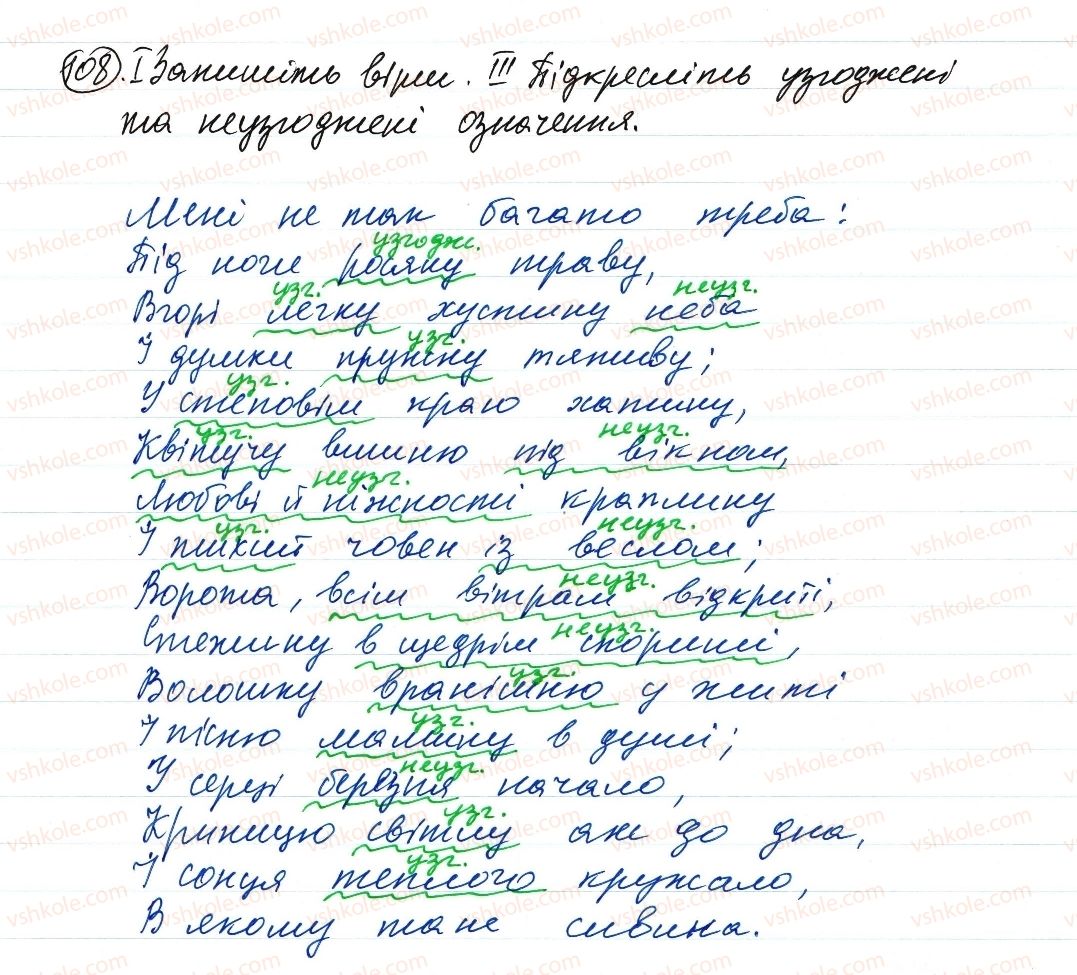 108. І Запишіть вірш. ІІІ Підкресліть узгоджені
та неузгоджені означення.
Мені не так багато треба:
узгодж.
Під ноги росяну траву,
узг. неузг.
Вгорі легку хустину неба
узг.
І думки пружну тятиву;
узг.
У степовім краю хатину,
узг. неузг.
Квітучу вишню під вікном,
неузг.
Любові й ніжності краплину
узг. неузг.
І тихий човен із веслом;
неузг.
Ворота, всім вітрам відкриті,
неузг.
Стежину в щедрім спориші,
узг.
Волошку вранішню у житі
узг.
І пісню мамину в душі;
неузг.
У серці березня начало,
узг.
Криницю світлу аж до дна,
узг.
І сонця теплого кружало,
В якому тане сивина.
vshkole.com